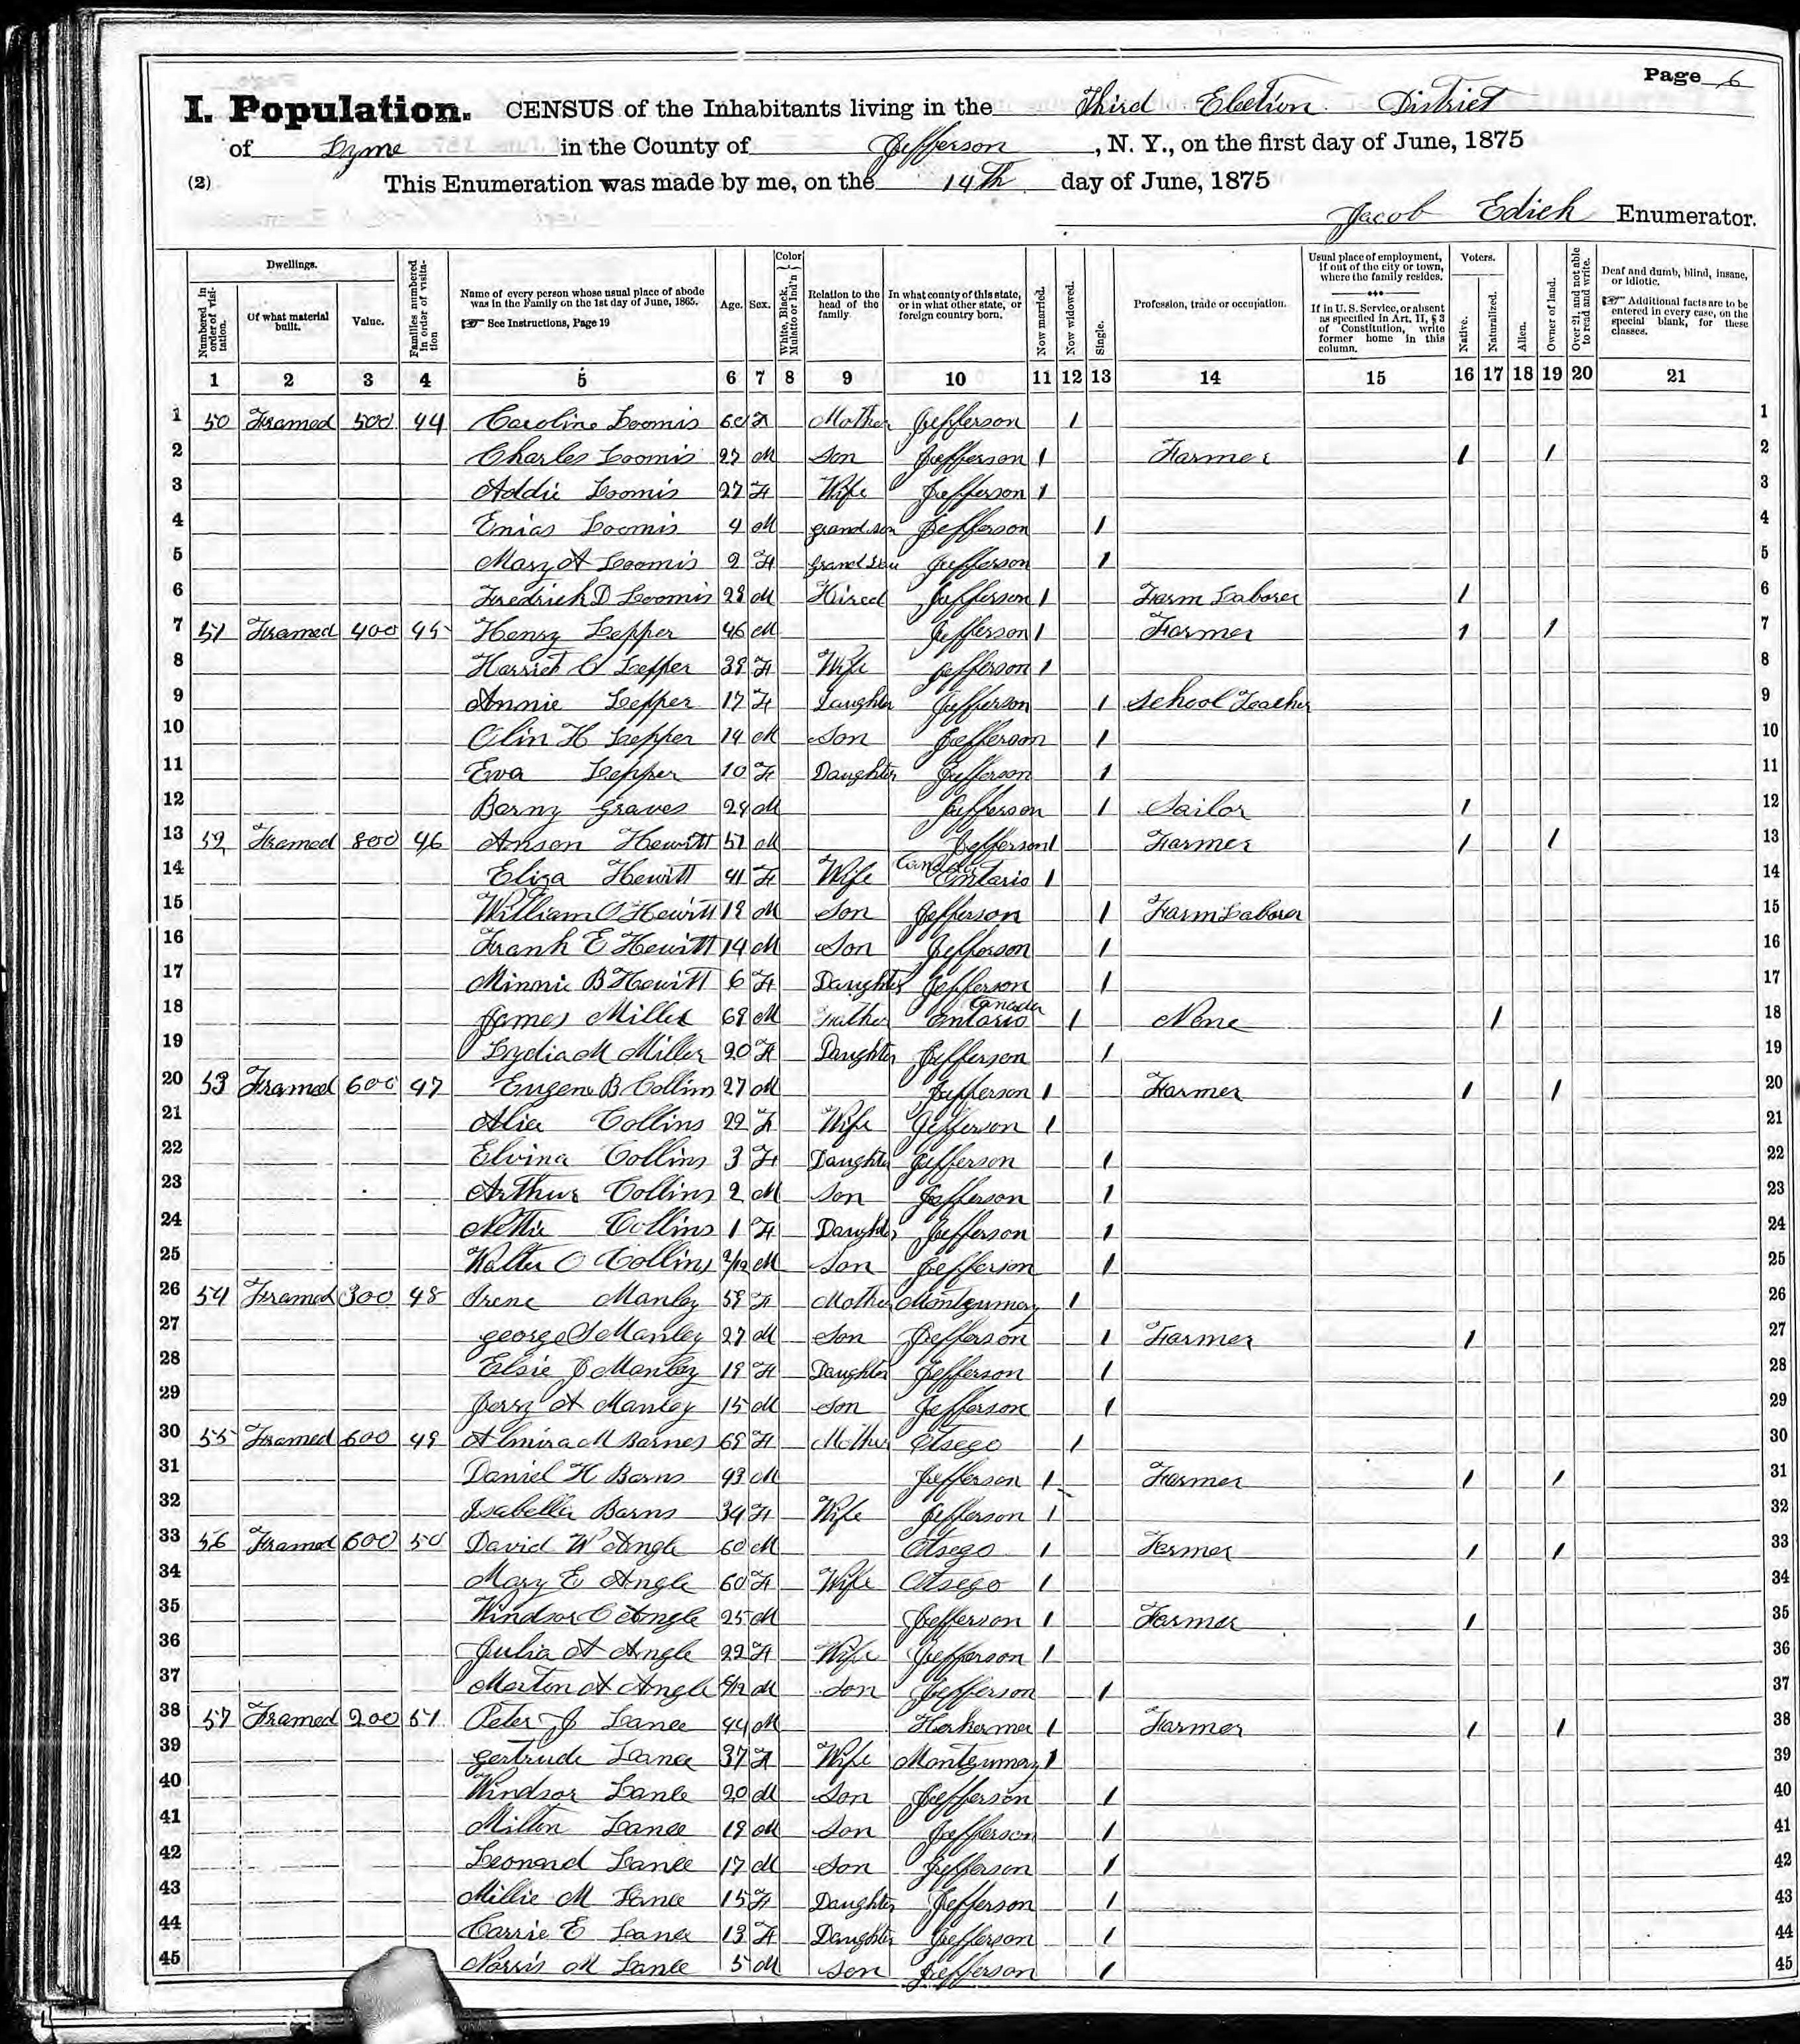 Page 6
I. Population. CENSUS of the Inhabitants living in the Third Election District
of Lyme in the County of Jefferson, N. Y., on the first day of June, 1875
(2) This Enumeration was made by me, on the 14th day of June, 1875
Jacob Edich Enumerator.
Dwellings. Numbered in order of visitation. Of what material built. Value. Families numbered in order of visitation Name of every person whose usual place of abode was in the Family on the 1st day of June, 1865. See Instructions, Page 19 Age. Sex. Color White, Black, Mulatto or Ind'n Relation to the head of the family. In what county of this state, or in what other state, or foreign country born. Now married. Now widowed. Single. Profession, trade or occupation. Usual place of employment, if out of the city or town, where the family resides. If in U. S. Service, or absent as specified in Art. II, § 3 of Constitution, write former home in this column. Voters. Native. Naturalized. Alien. Owner of land. Over 21, and not able to read and write. Deaf and dumb, blind, insane, or idiotic. Additional facts are to be entered in every case, on the special blank, for these classes.
1 2 3 4 5 6 7 8 9 10 11 12 13 14 15 16 17 18 19 20 21
1 50 Framed 500 44 Caroline Loomis 60 F Mother Jefferson 1 1
2 Charles Loomis 27 M Son Jefferson 1 Farmer 1 1 2
3 Addie Loomis 27 F Wife Jefferson 1 3
4 Enias Loomis 4 M Grand son Jefferson 1 4
5 Mary A Loomis 2 F Jefferson 1 5
6 Fredrich D Loomis 28 M Hired Jefferson 1 Farm Laborer 1 6
7 51 Framed 400 45 Henry Lepper 46 M Jefferson 1 Farmer 1 1 7
8 Harriet C Lepper 38 F Wife Jefferson 1 8
9 Annie Lepper 17 F Daughter Jefferson 1 School Teacher 9
10 Olin H Lepper 14 M Son Jefferson 1 10
11 Eva Lepper 10 F Daughter Jefferson 1 11
12 Barny Graves 24 M Jefferson 1 Sailor 1 12
13 52 Framed 800 46 Anson Hewitt 51 M Jefferson 1 Farmer 1 1 13
14 Eliza Hewitt 41 F Wife Canada Ontario 1 14
15 William O Hewitt 18 M Son Jefferson 1 Farm Laborer 15
16 Frank E Hewitt 14 M Son Jefferson 1 16
17 Minnie B Hewitt 6 F Daughter Jefferson 1 17
18 James Miller 68 M Father Canada Ontario 1 None 1 18
19 Lydia M Miller 20 F Daughter Jefferson 1 19
20 53 Framed 600 47 Eugene B Collins 27 M Jefferson 1 Farmer 1 1 20
21 Alice Collins 22 F Wife Jefferson 1 21
22 Elvina Collins 3 F Daughter Jefferson 1 22
23 Arthur Collins 2 M Son Jefferson 1 23
24 Nettie Collins 1 F Daughter Jefferson 1 24
25 Walter O Collins 2/12 M Son Jefferson 1 25
26 54 Framed 300 48 Irene Manley 58 F Mother Montgumery 1 26
27 George S Manley 27 M Son Jefferson 1 Farmer 1 27
28 Elsie J Manley 18 F Daughter Jefferson 1 28
29 Jersy A Manley 15 M Son Jefferson 1 29
30 55 Framed 600 49 Almira M Barnes 68 F Mother Otsego 1 30
31 Daniel H Barns 43 M Jefferson 1 Farmer 1 1 31
32 Isabella Barns 34 F Wife Jefferson 1 32
33 56 Framed 600 50 David W Angle 60 M Otsego 1 Farmer 1 1 33
34 Mary E Angle 60 F Wife Otsego 1 34
35 Windsor C Angle 25 M Jefferson 1 Farmer 1 35
36 Julia A Angle 22 F Wife Jefferson 1 36
37 Morton A Angle M Son Jefferson 1 37
38 57 Framed 200 51 Peter J Lance 44 M Herkermer 1 Farmer 1 1 38
39 Gertrude Lance 37 F Wife Montgumery 1 39
40 Windsor Lance 20 M Son Jefferson 1 40
41 Milton Lance 18 M Son Jefferson 1 41
42 Leonard Lance 17 M Son Jefferson 1 42
43 Millie M Lance 15 F Daughter Jefferson 1 43
44 Carrie E Lance 13 F Daughter Jefferson 1 44
45 Norris M Lance 5 M Son Jefferson 1 45